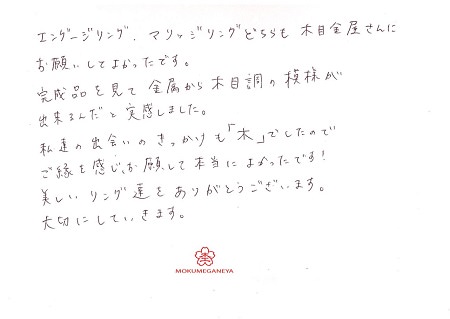 エンゲージリング、マリッジリングどちらも 木目金屋さんに
お願いしてよかったです。
完成品を見て 金属から木目調の模様が
出来るんだと実感しました。
私達の出会いのきっかけも「木」でしたので
ご縁を感じ、お願して本当によかったです！
美しいリング達をありがとうございます。
大切にしていきます。
MOKUMEGANEYA